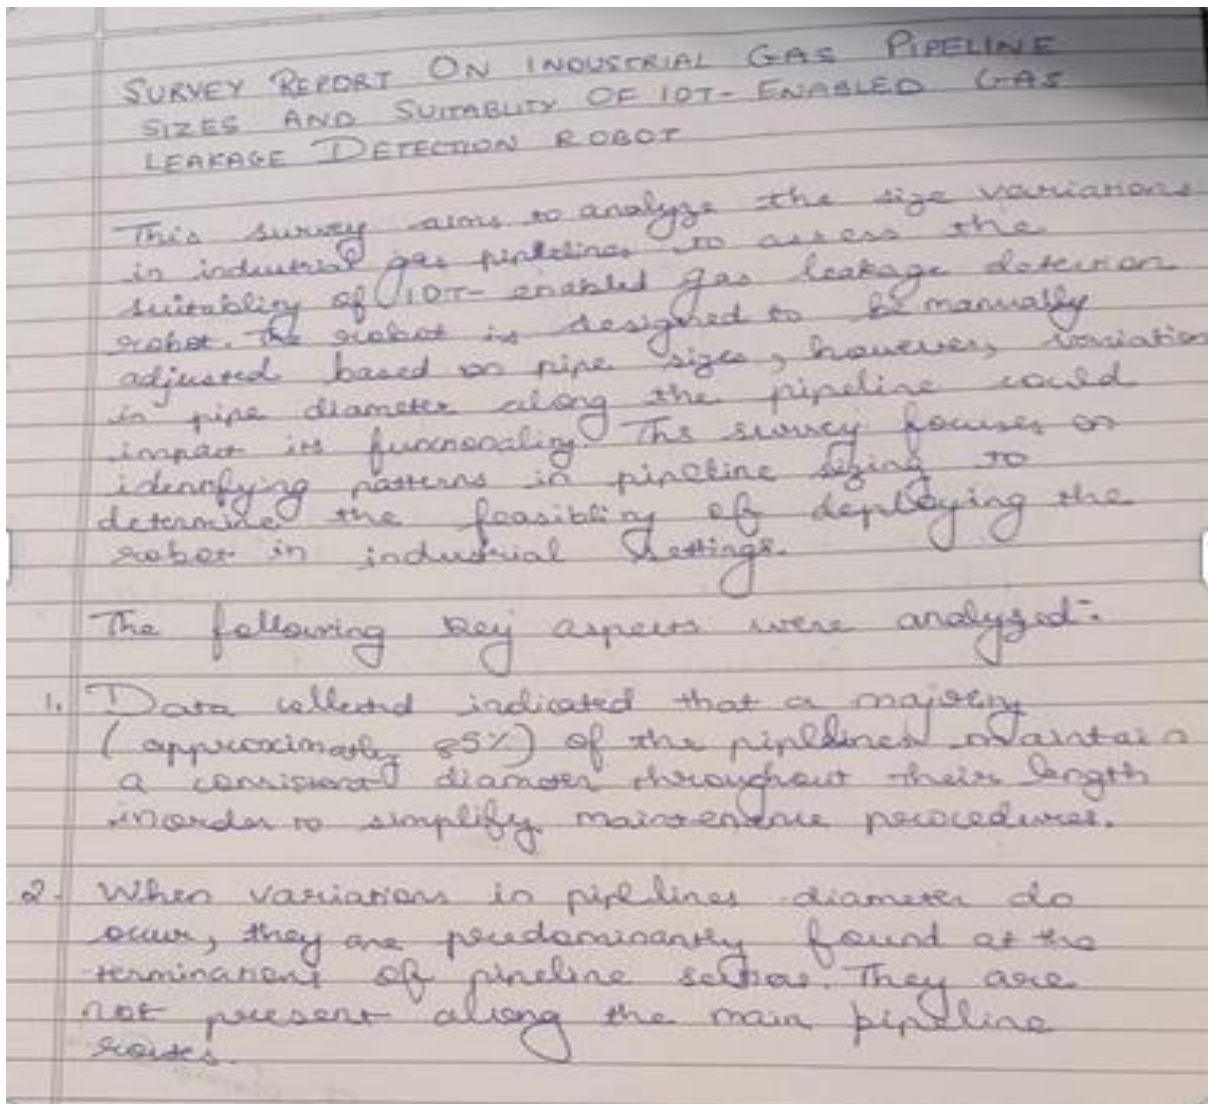 SURVEY REPORT ON INDUSTRIAL GAS PIPELINE
SIZES AND SUITABLITY OF IOT- ENABLED GAS
LEAKAGE DETECTION ROBOT
This survey aims to analyze the size variations
in industrial gas pipelines to assess the
suitablity of IOT- enabled gas leakage detection
robot. The robot is designed to be manually
adjusted based on pipe sizes, however, variation
in pipe diameter along the pipeline could
impact its functionality. The survey focuses on
identifying patterns in pipeline sizing to
determine the feasiblity of deploying the
robot in industrial settings.
The following key aspects were analyzed:-
1. Data collected indicated that a majority
(approximately 85%) of the pipelines maintain
a consistent diameter throughout their length
inorder to simplify maintenance procedures.
2. When variations in pipelines diameter do
occur, they are predominantly found at the
terminations of pipeline They are
not present along the main pipeline
routes.